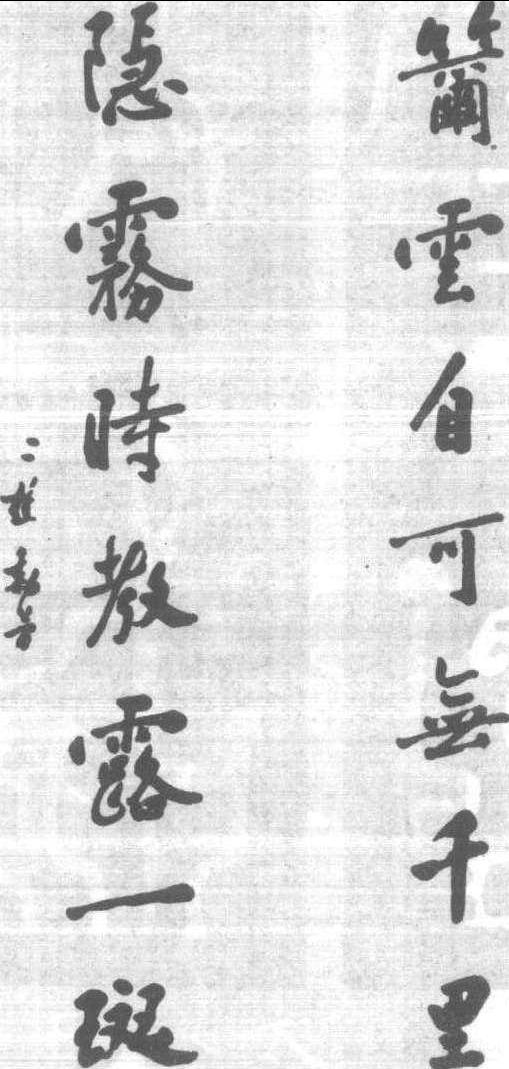 籋雲自可無千里
隱霧時教露一斑
二樵黎簡